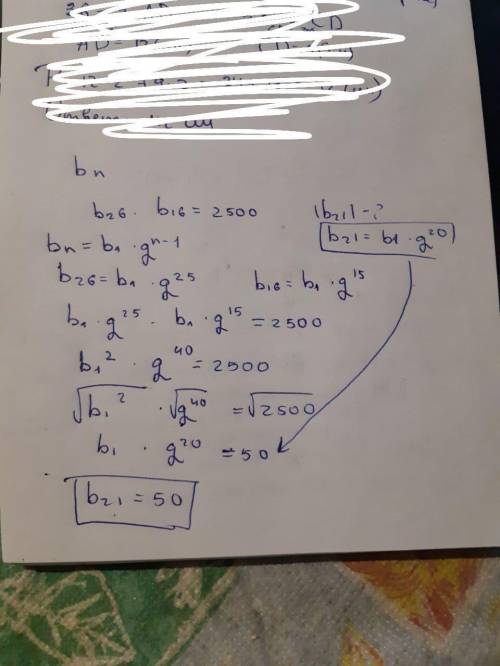 bn
b26 · b16 = 2500
|b21| - ?
bn = b1 · g^n-1
b21 = b1 · g^20
b26 = b1 · g^25
b16 = b1 · g^15
b1 · g^25 · b1 · g^15 = 2500
b1^2 · g^40 = 2500
√b1^2 · √g^40 = √2500
b1 · g^20 = 50
b21 = 50